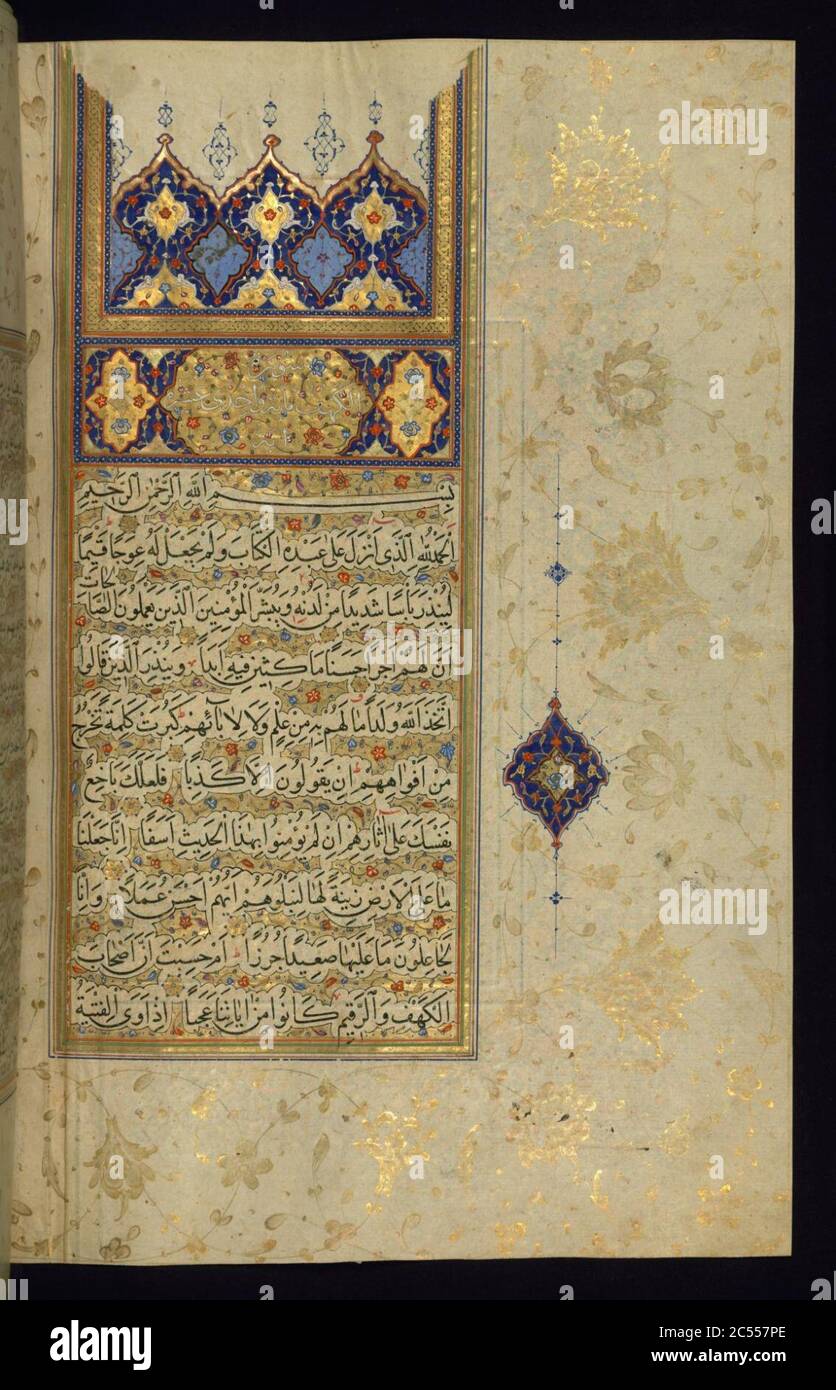 بسم الله الرحمن الرحيم
الحمد لله الذي أنزل على عبده الكتاب ولم يجعل له عوجا قيما
لينذر بأسا شديدا من لدنه ويبشر المؤمنين الذين يعملون الصالحات
أن لهم أجرا حسنا ماكثين فيه أبدا وينذر الذين قالوا
اتخذ الله ولدا ما لهم به من علم ولا لآبائهم كبرت كلمة تخرج
من أفواههم إن يقولون إلا كذبا فلعلك باخع
نفسك على آثارهم إن لم يؤمنوا بهذا الحديث أسفا إنا جعلنا
ما على الأرض زينة لها لنبلوهم أيهم أحسن عملا وإنا
لجاعلون ما عليها صعيدا جرزا أم حسبت أن أصحاب
الكهف والرقيم كانوا من آياتنا عجبا إذ أوى الفتية
alamy
alamy
Image ID: 2C557PE
www.alamy.com